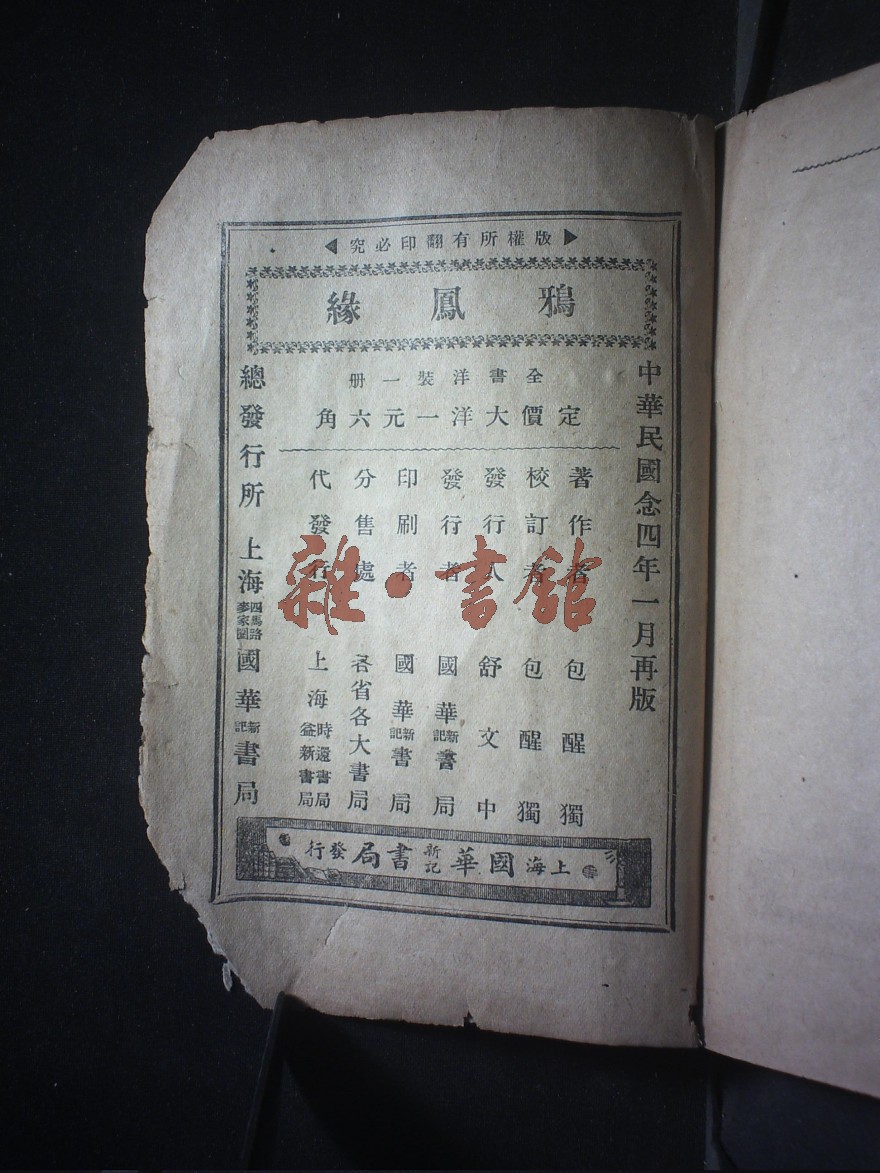 版權所有翻印必究
鴉鳳緣
中華民國念四年一月再版
全書洋裝一册
定價大洋一元六角
著作者 包醒獨
校訂者 包醒獨
發行人 舒文中
發行者 國華新記書局
印刷者 國華新記書局
分售處 各省各大書局
代發行 上海時還書局益新書局
總發行所 上海四馬路麥家圈國華新記書局
上海國華新記書局發行
雜·書館